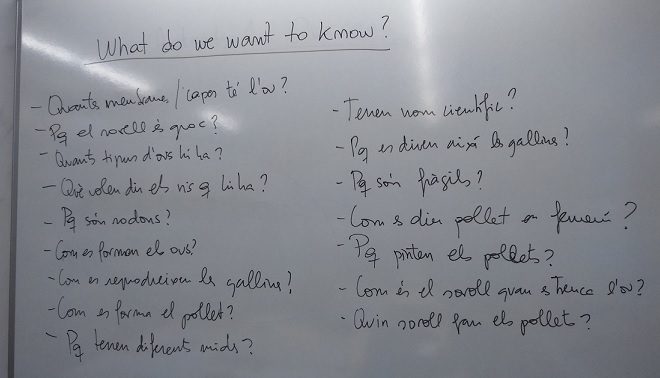 What do we want to know?
- Quantes membranes/capes té l'ou?
- Pq el rovell és groc?
- Quants tipus d'ous hi ha?
- Què volen dir els nºs q hi ha?
- Pq són rodons?
- Com es formen els ous?
- Com es reprodueixen les gallines?
- Com es forma el pollet?
- Pq tenen diferents mides?
- Tenen nom científic?
- Pq es diuen així les gallines?
- Pq són fràgils?
- Com es diu pollet en femení?
- Pq pinten els pollets?
- Com és el soroll quan es trenca l'ou?
- Quin soroll fan els pollets?